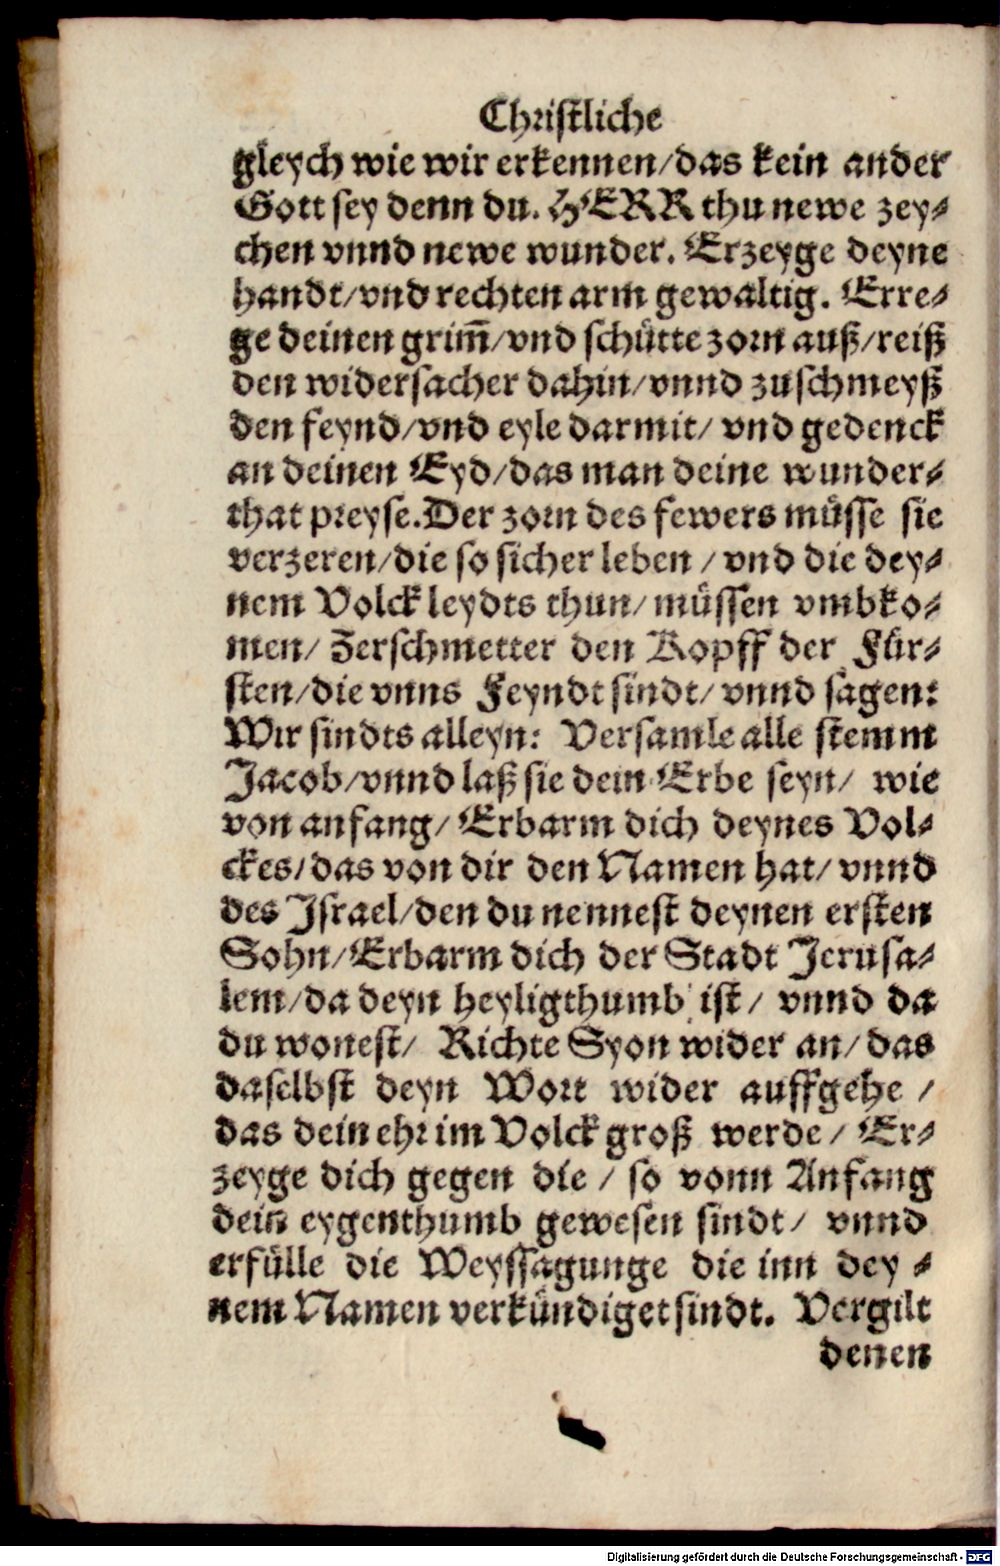 Christliche
gleych wie wir erkennen/das kein ander
Gott sey denn du. HERR thu newe zey⸗
chen vnnd newe wunder. Erzeyge deyne
handt/vnd rechten arm gewaltig. Erre⸗
ge deinen grim̃/vnd schütte zorn auß/reiß
den widersacher dahin/vnnd zuschmeyß
den feynd/vnd eyle darmit/ vnd gedenck
an deinen Eyd/das man deine wunder⸗
that preyse. Der zorn des fewers müsse sie
verzeren/die so sicher leben / vnd die dey⸗
nem Volck leydts thun/ müssen vmbko⸗
men/ Zerschmetter den Kopff der Für⸗
sten/die vnns Feyndt sindt/ vnnd sagen:
Wir sindts alleyn: Versamle alle stemm
Jacob/vnnd laß sie dein Erbe seyn/ wie
von anfang/ Erbarm dich deynes Vol⸗
ckes/das von dir den Namen hat/ vnnd
des Israel/den du nennest deynen ersten
Sohn/Erbarm dich der Stadt Jerusa⸗
lem/da deyn heyligthumb ist/ vnnd da
du wonest/ Richte Syon wider an/das
daselbst deyn Wort wider auffgehe /
das dein ehr im Volck groß werde/ Er⸗
zeyge dich gegen die / so vonn Anfang
dein eygenthumb gewesen sindt/ vnnd
erfülle die Weyssagunge die inn dey ⸗
nem Namen verkündiget sindt. Vergilt
denen
Digitalisierung gefördert durch die Deutsche Forschungsgemeinschaft - DFG